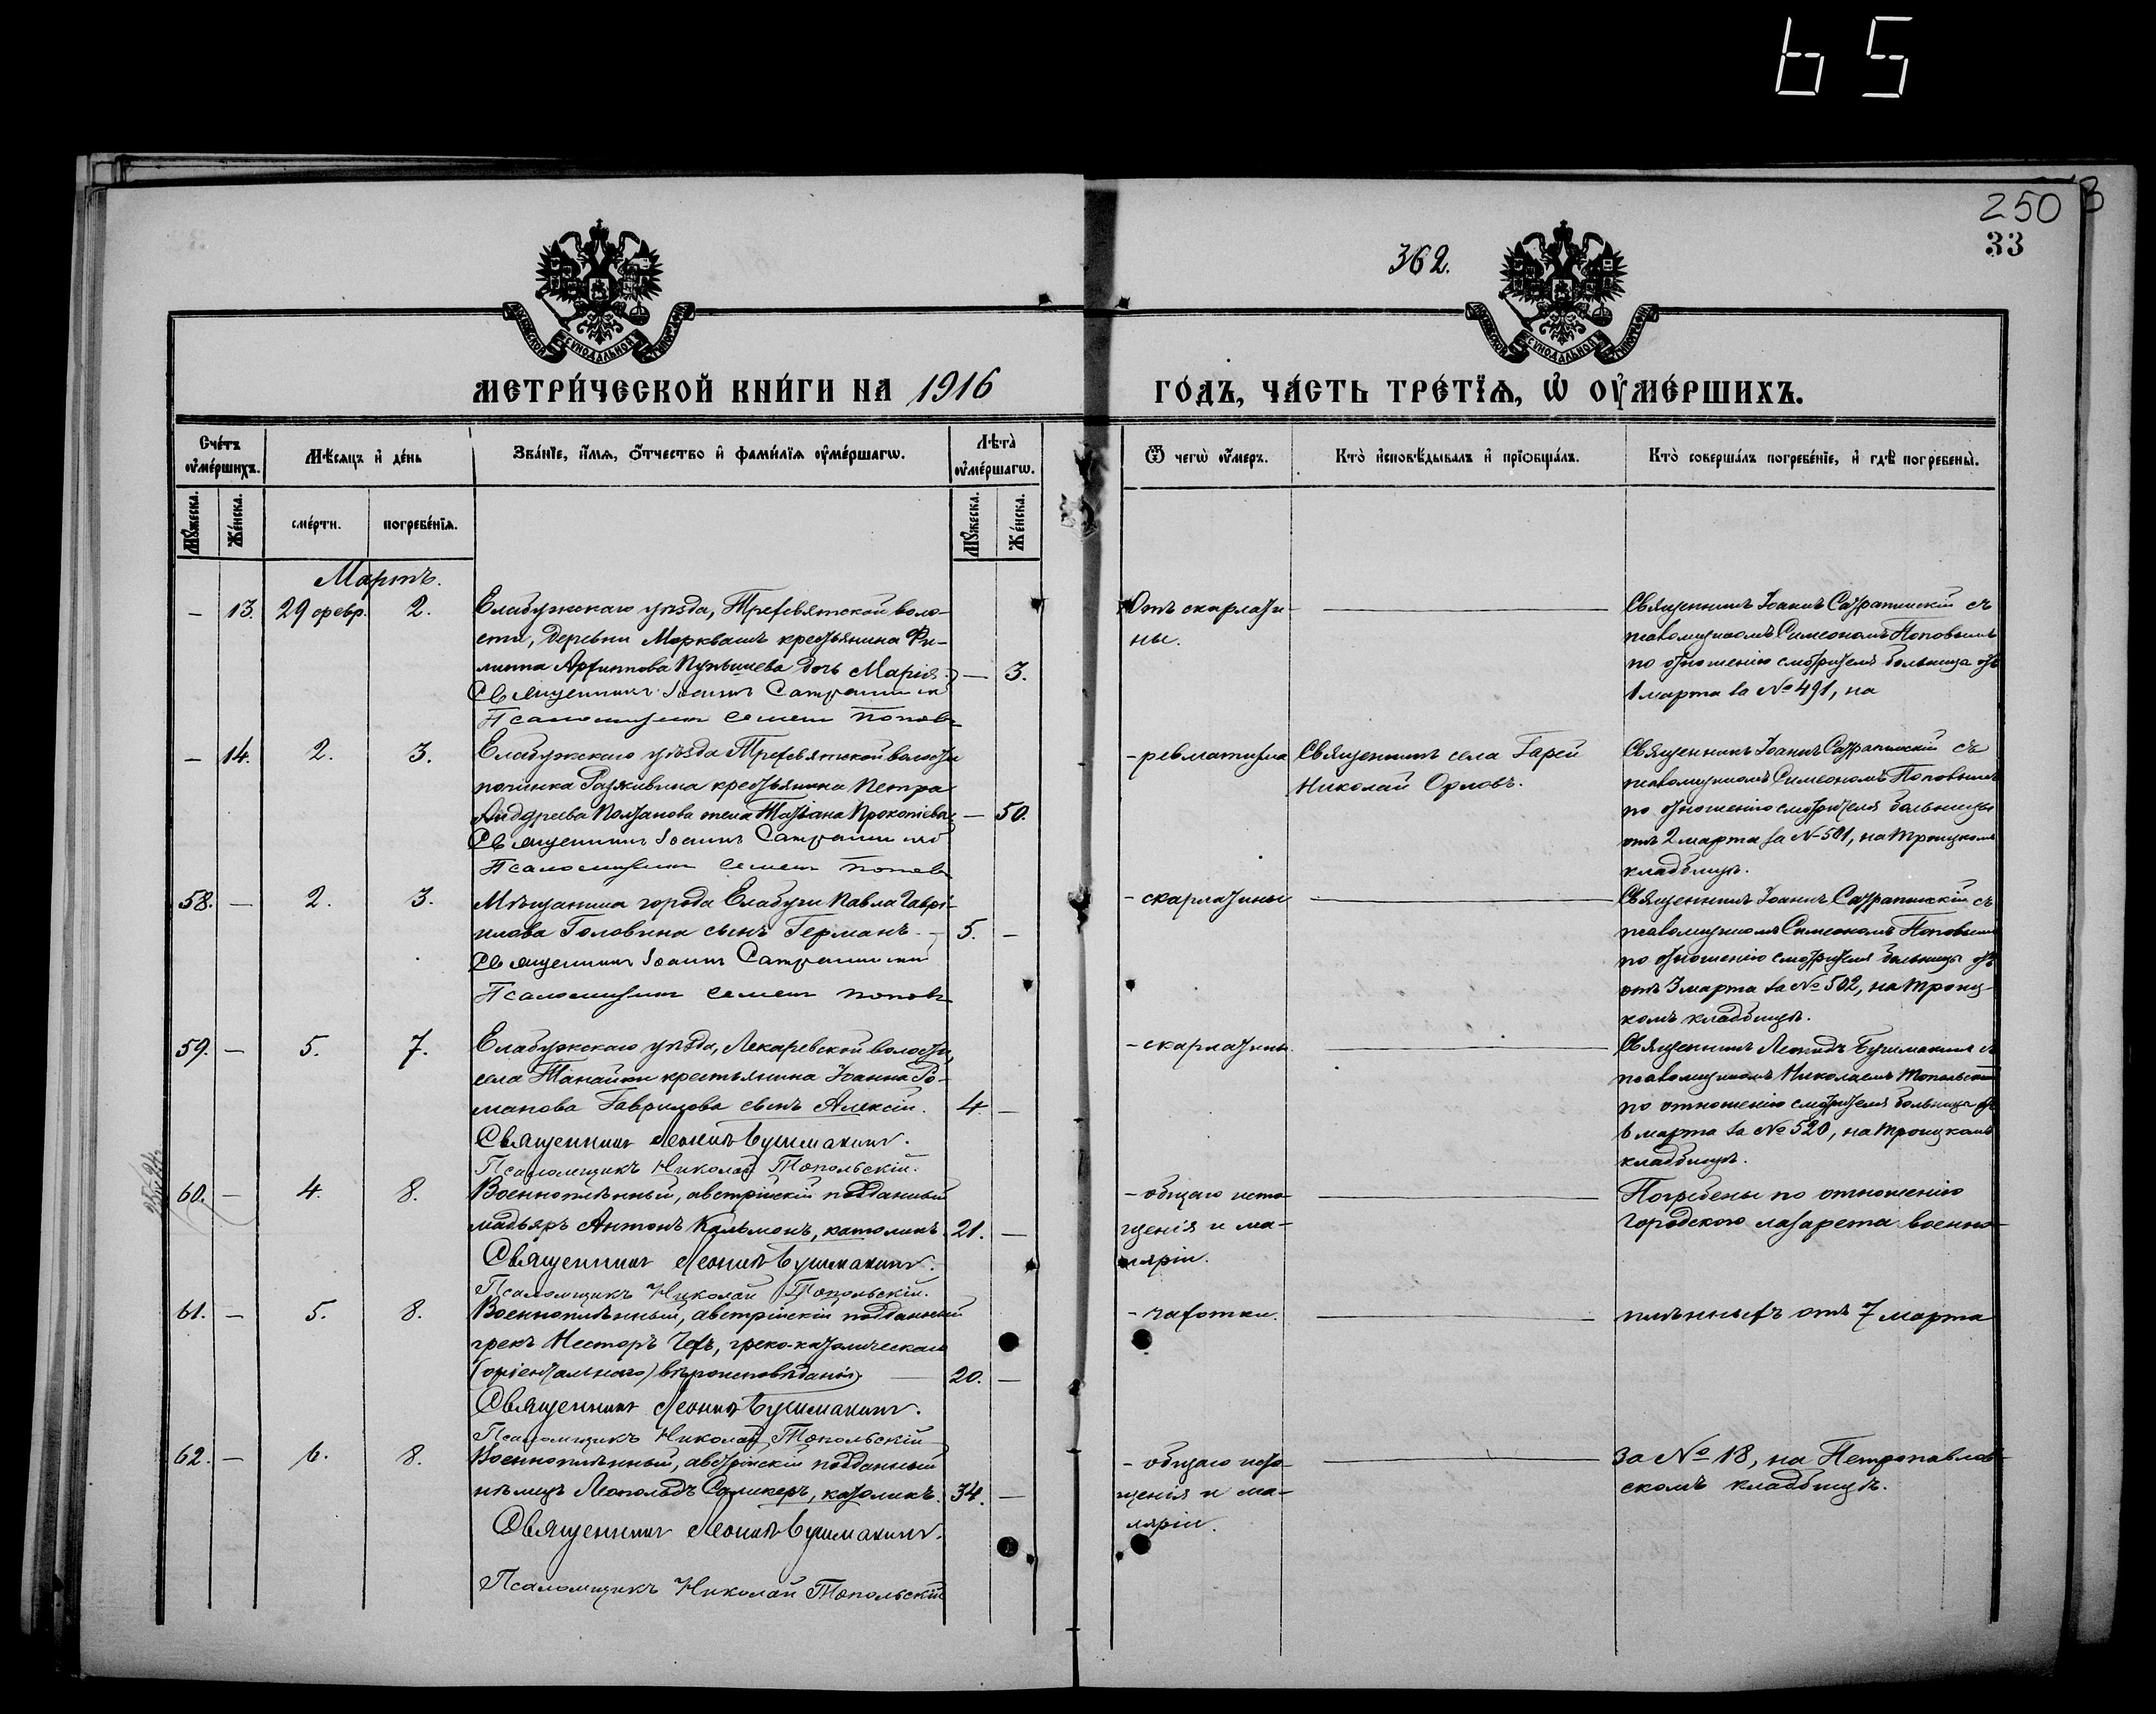 65
250
33
362.
МЕТРИ́ЧЕСКОЙ КНИ́ГИ НА 1916
ГО́ДЪ, ЧА́СТЬ ТРЕ́ТЇѦ, Ѡ҆ ОУ҆МЕ́РШИХЪ.
Сче́тъ оу҆ме́ршихъ.
Мѣ́сѧцъ и҆ де́нь
Зва́нїе, и҆́мѧ, ѻ҆́тчество и҆ фами́лїѧ оу҆ме́ршагѡ.
Лѣ́та оу҆ме́ршагѡ.
Ѿ чегѡ̀ оу҆́меръ.
Кто̀ и҆сповѣ́дывалъ и҆ прїѡбща́лъ.
Кто̀ соверша́лъ погребе́нїе, и҆ гдѣ̀ погребены̀.
Мꙋ́жеска.
Же́нска.
сме́рти.
погребе́нїѧ.
Мꙋ́жеска.
Же́нска.
Мартъ.
— 13. 29 февр. 2.
Елабужскаго уѣзда, Трехсвятской воло-
сти, деревни Морквашъ крестьянина Фи-
липпа Архиппова дочь Марія — 3.
Священникъ Іоаннъ
Псаломщикъ Семенъ Поповъ
Отъ скарлати-
ны.
Священникъ Іоаннъ Сатрапинскій съ
псаломщикомъ Симеономъ Поповымъ
по отношенію смотрителя больницы отъ
1 марта за № 491, на
— 14. 2. 3.
Елабужскаго уѣзда Трехсвятской волости
починка крестьянина Петра
Андреева Ползанова жена Татіана Прокопіева — 50.
Священникъ Іоаннъ
Псаломщикъ Семенъ Поповъ
- ревматизма
Священникъ села Гарей
Николай Орловъ.
Священникъ Іоаннъ Сатрапинскій съ
псаломщикомъ Симеономъ Поповымъ
по отношенію смотрителя больницы
отъ 2 марта за № 501, на Троицкомъ
кладбищѣ.
58. — 2. 3.
Мѣщанина города Елабуги Павла Гаврі-
илова Головина сынъ Германъ 5. —
Священникъ Іоаннъ
Псаломщикъ Семенъ Поповъ
- скарлатины
Священникъ Іоаннъ Сатрапинскій съ
псаломщикомъ Симеономъ Поповымъ
по отношенію смотрителя больницы отъ
отъ 3 марта за № 502, на Троиц-
комъ кладбищѣ.
59. — 5. 7.
Елабужскаго уѣзда, Лекаревской волости,
села Танайки крестьянина Іоанна Ро-
манова Гаврилова сынъ Алексій. 4 —
Священникъ Леонидъ Бушмакинъ.
Псаломщикъ Николай Топольскій.
- скарлатины.
Священникъ Леонидъ Бушмакинъ съ
псаломщикомъ Николаемъ Топольскимъ
по отношенію смотрителя больницы отъ
6 марта за № 520, на Троицкомъ
кладбищѣ.
60. — 4. 8.
Военноплѣнный, австрійскій подданный
мадьяръ Антонъ Кальмонъ, католикъ. 21. —
Священникъ Леонидъ Бушмакинъ.
Псаломщикъ Николай Топольскій.
- общаго исто-
щенія и ма-
ляріи.
Погребены по отношенію
городского лазарета военно-
61. — 5. 8.
Военноплѣнный, австрійскій подданный
грекъ Несторъ Чехъ, греко-католическаго
(оріентальнаго) вѣроисповѣданія — 20. —
Священникъ Леонидъ Бушмакинъ.
Псаломщикъ Николай Топольскій
- чахотки.
плѣнныхъ отъ 7 марта
62. — 6. 8.
Военноплѣнный, австрійскій подданный
нѣмецъ Леопольдъ Саликеръ, католикъ. 34. —
Священникъ Леонидъ Бушмакинъ.
Псаломщикъ Николай Топольскій
- общаго исто-
щенія и ма-
ляріи.
за № 18, на Петропавлов-
скомъ кладбищѣ.